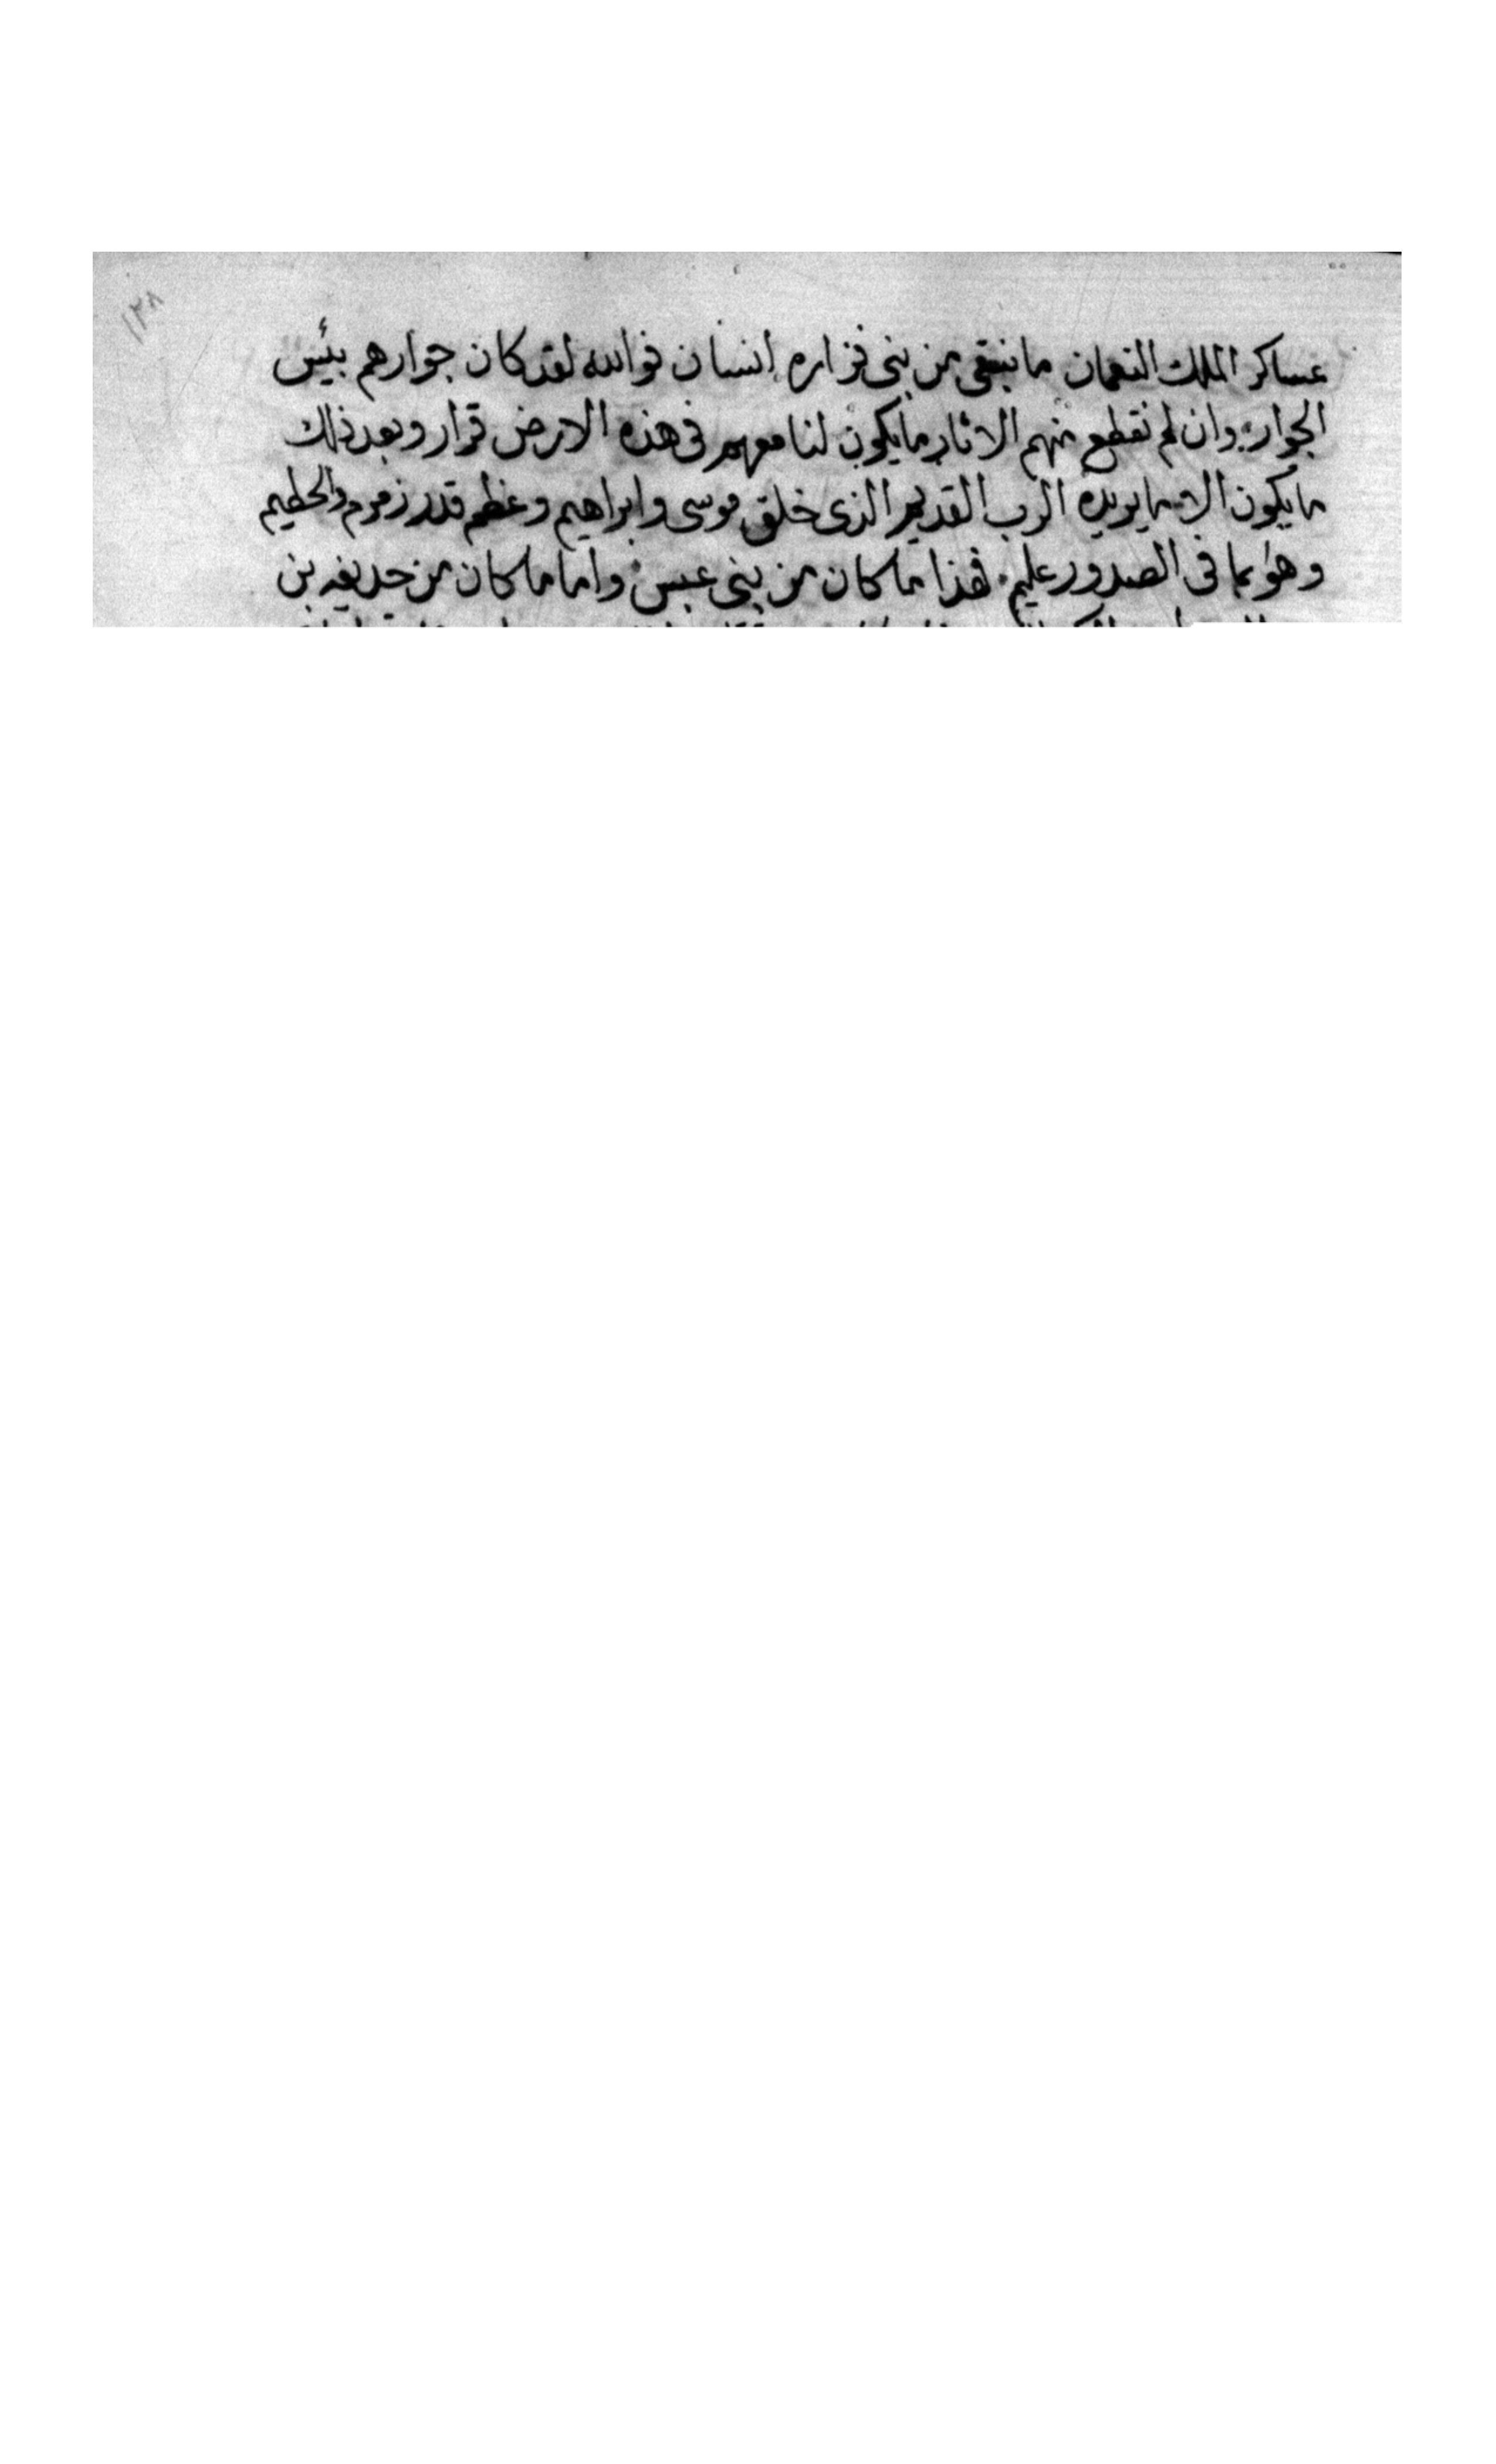 ١٢٨
عساكر الملك النعمان ما نبقى من بنى فزاره انسان فوالله لقد كان جوارهم بئيس
الجوار وان لم نقطع منهم الاثار ما يكون لنا معهم فى هذه الارض قرار وبعد ذلك
ما يكون الا ما يريده الرب القديم الذى خلق موسى وابراهيم وعظم قدر زمزم والحطيم
وهو بما فى الصدور عليم فهذا ما كان من بنى عبس واما ما كان من حديفه بن